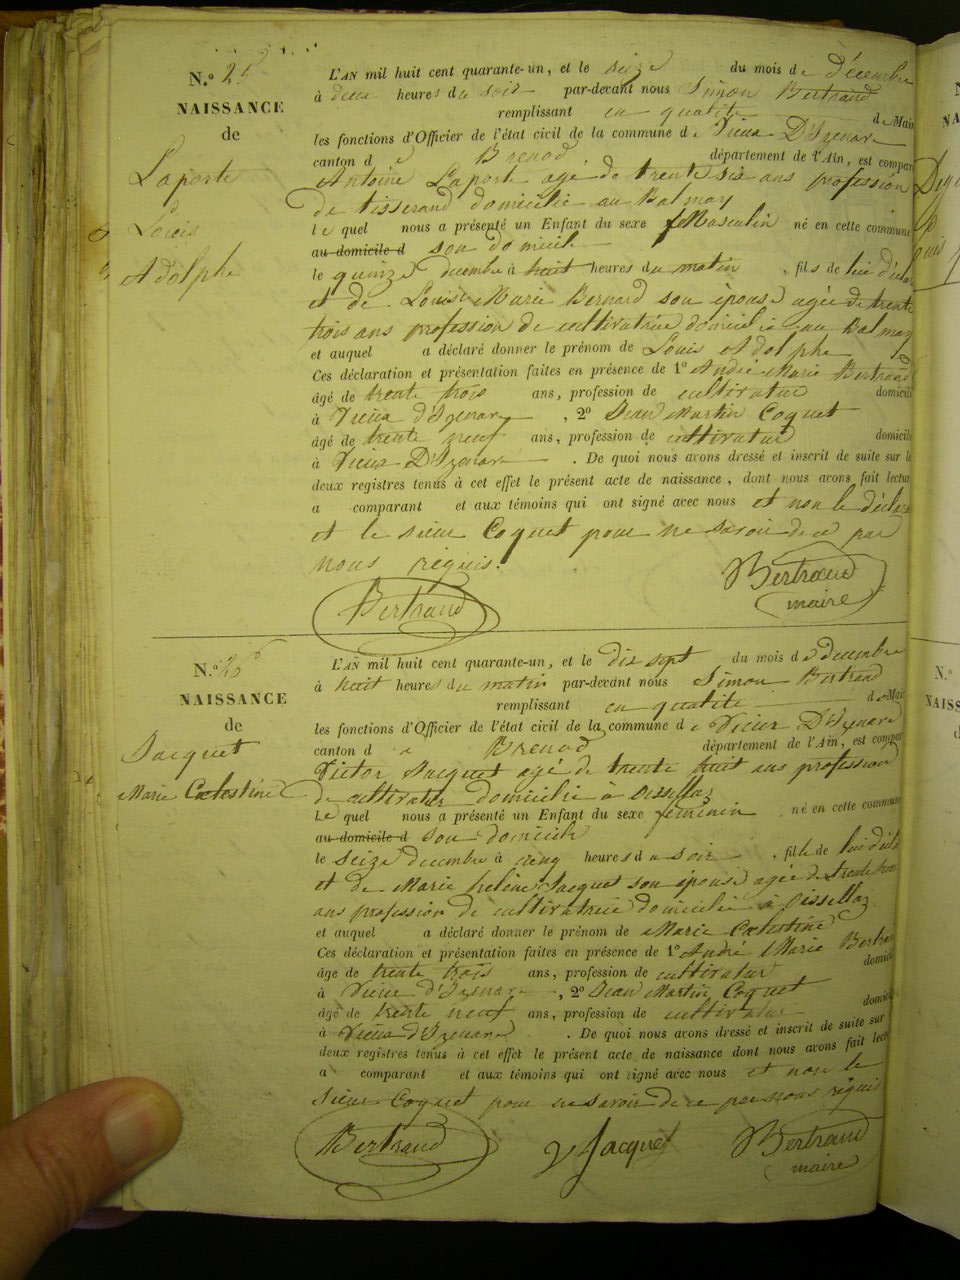 N.º 25
NAISSANCE
de
Laporte
Louis
Adolphe
L'AN mil huit cent quarante-un, et le seize du mois de décembre
à deux heures du soir par-devant nous Simon Bertrand
remplissant en qualité de Mair
les fonctions d'Officier de l'état civil de la commune de Vieux D'Izenave
canton de Brenod département de l'Ain, est compar
Antoine Laporte agé de trente six ans profession
de tisserand domicilié au Balmay
lequel nous a présenté un Enfant du sexe Masculin né en cette commune
au domicile d son domicile
le quinze decembre à huit heures du matin, fils de lui décla
et de Louise Marie Bernard son épouse agée de trente
trois ans profession de cultivatrice domiciliée au Balmay
et auquel a déclaré donner le prénom de Louis Adolphe
Ces déclaration et présentation faites en présence de 1º André Marie Bertrand
âgé de trente trois ans, profession de cultivateur domicili
à Vieux d'Izenave, 2º Jean Martin Coquet
âgé de trente neuf ans, profession de cultivateur domicili
à Vieux D'Izenave. De quoi nous avons dressé et inscrit de suite sur le
deux registres tenus à cet effet le présent acte de naissance, dont nous avons fait lectur
a comparant et aux témoins qui ont signé avec nous et non le déclara
et le sieur Coquet pour ne savoir de ce par
nous réquis.
Bertrand Bertrand
maire
N.º 26
NAISSANCE
de
Jacquet
Marie Cœlestine
L'AN mil huit cent quarante-un, et le dix sept du mois de decembre
à huit heures du matin par-devant nous Simon Bertrand
remplissant en qualité de Mair
les fonctions d'Officier de l'état civil de la commune de Vieux D'Izenave
canton de Brenod département de l'Ain, est compar
Victor Jacquet agé de trente huit ans profession
de cultivateur domicilié a Oissellaz
Lequel nous a présenté un Enfant du sexe féminin né en cette commun
au domicile d son domicile
le seize decembre à cinq heures du soir, fille de lui dit
et de Marie helène Jacquet son épouse agée de trente
ans profession de cultivatrice domiciliée à Oissellaz
et auquel a déclaré donner le prénom de Marie Cœlestine
Ces déclaration et présentation faites en présence de 1º André Marie Bertra
âge de trente trois ans, profession de cultivateur domici
à Vieux d'Izenave, 2º Jean Martin Coquet
âgé de trente neuf ans, profession de cultivateur domici
à Vieux d'Izenave. De quoi nous avons dressé et inscrit de suite sur
deux registres tenus à cet effet le présent acte de naissance dont nous avons fait lec
a comparant et aux témoins qui ont signé avec nous et non le
sieur Coquet pour ne savoir de ce par nous réquis
Bertrand V Jacquet Bertrand
maire